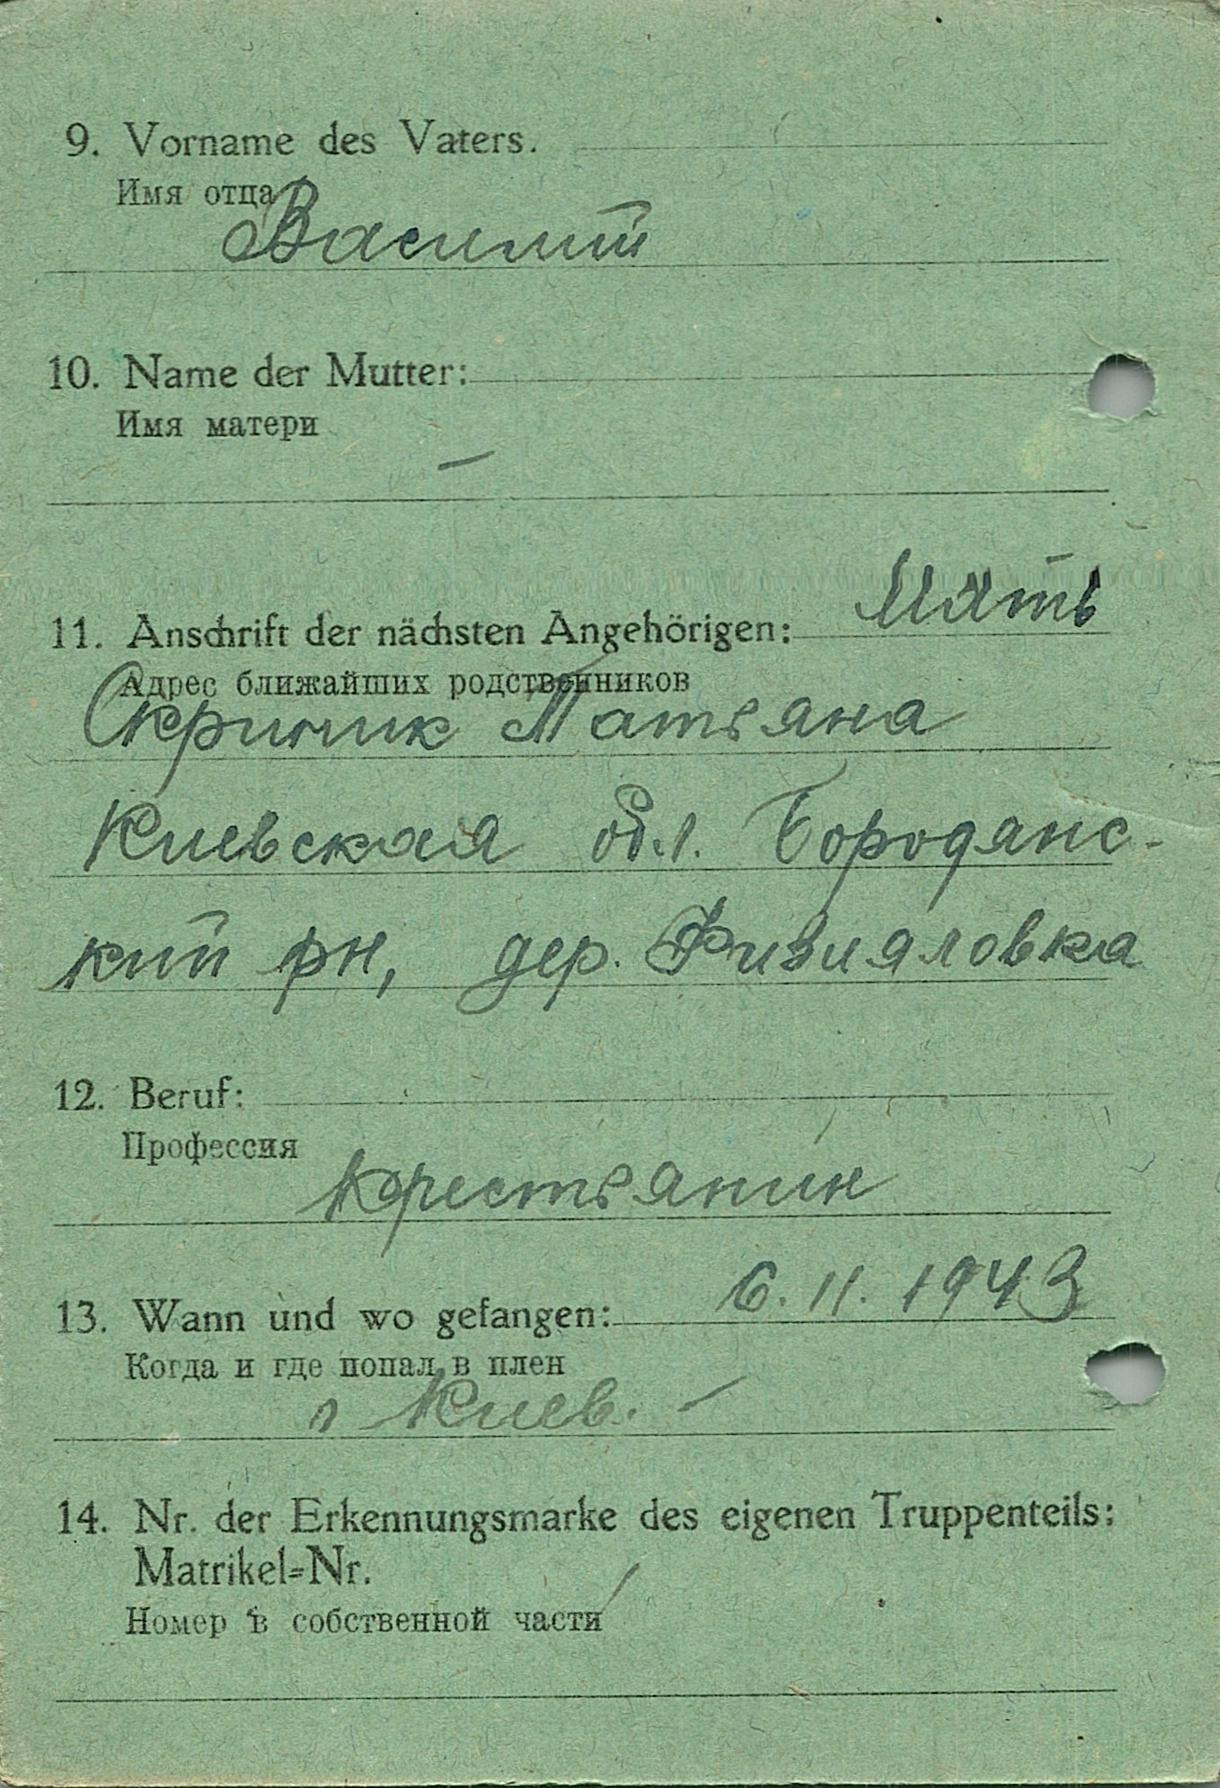 9. Vorname des Vaters.
Имя отца
Василий
10. Name der Mutter:
Имя матери
–
Мать
11. Anschrift der nächsten Angehörigen:
Адрес ближайших родственников
Татьяна
Киевская обл. Бородянс-
кий рн, дер.
12. Beruf:
Профессия
Крестьянин
6.11.1943
13. Wann und wo gefangen:
Когда и где попал в плен
г Киев. –
14. Nr. der Erkennungsmarke des eigenen Truppenteils:
Matrikel=Nr.
Номер в собственной части